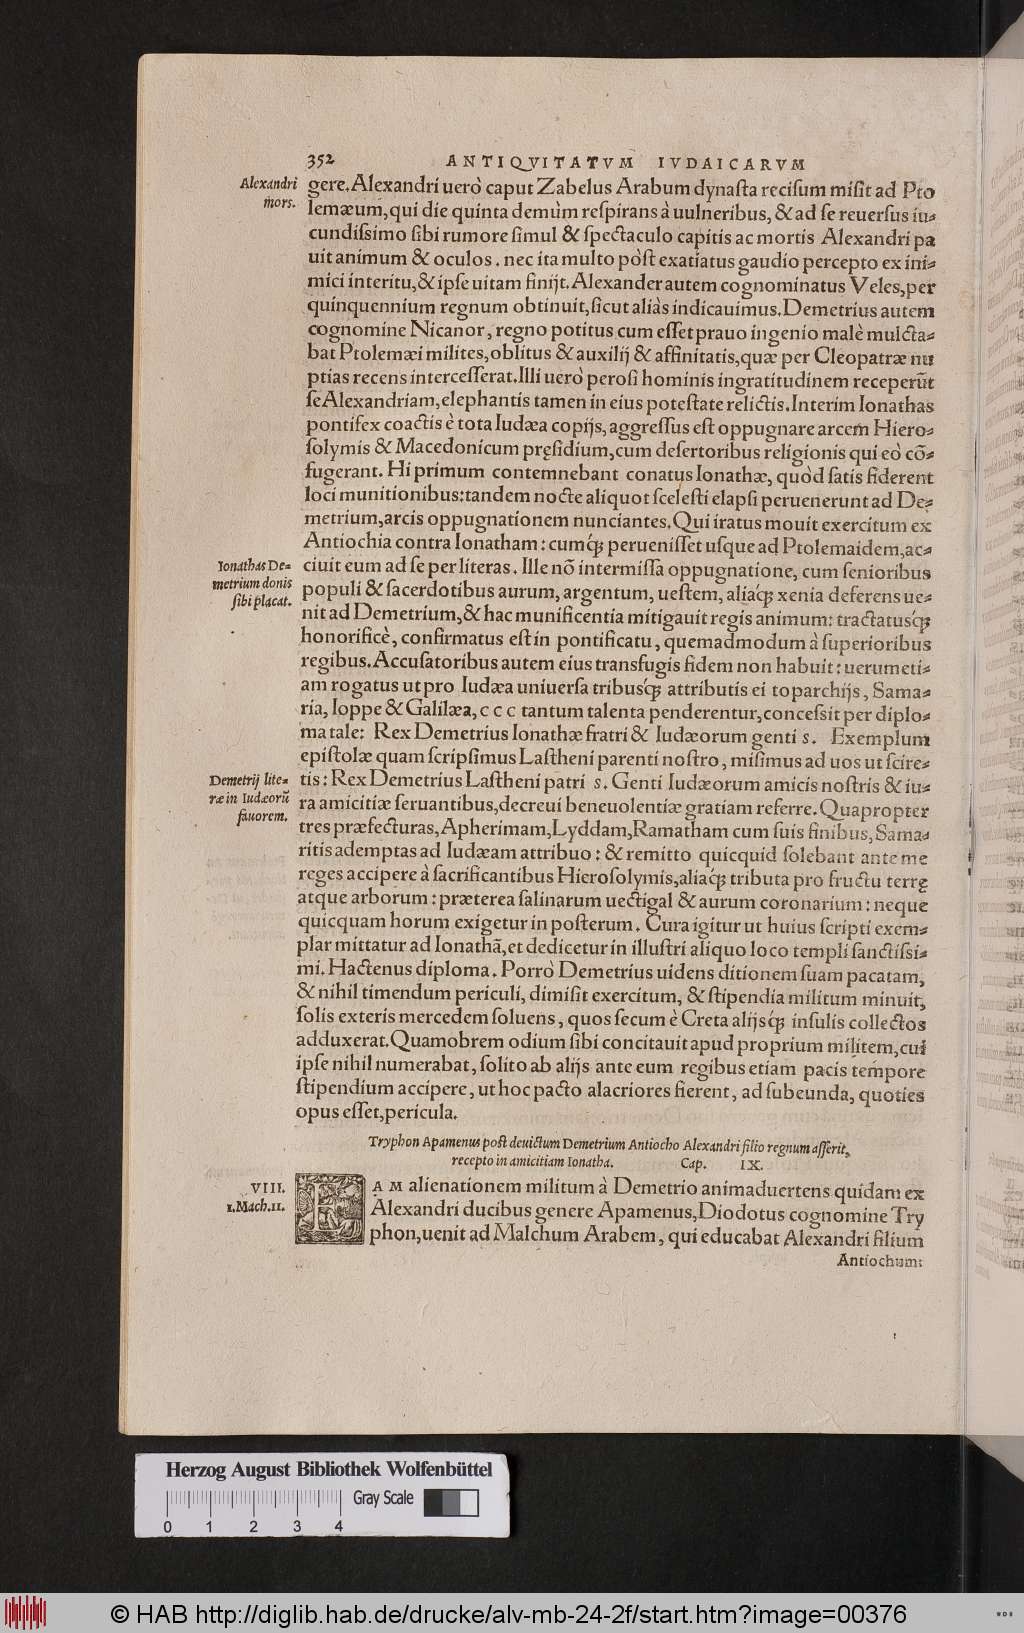 352 ANTIQVITATVM IVDAICARVM
Alexandri
mors.
gere. Alexandri uerò caput Zabelus Arabum dynaſta reciſum miſit ad Pto
lemæum, qui die quinta demùm reſpirans à uulneribus, & ad ſe reuerſus iu⸗
cundiſsimo ſibi rumore ſimul & ſpectaculo capitis ac mortis Alexandri pa
uit animum & oculos. nec ita multo pòſt exatiatus gaudio percepto ex ini⸗
mici interitu, & ipſe uitam finijt. Alexander autem cognominatus Veles, per
quinquennium regnum obtinuit, ſicut aliàs indicauimus. Demetrius autem
cognomine Nicanor, regno potitus cum eſſet prauo ingenio malè mulcta⸗
bat Ptolemæi milites, oblitus & auxilij & affinitatis, quæ per Cleopatræ nu
ptias recens interceſſerat. Illi uerò peroſi hominis ingratitudinem receperũt
ſe Alexandriam, elephantis tamen in eius poteſtate relictis. Interim Ionathas
pontifex coactis è tota Iudæa copijs, aggreſſus eſt oppugnare arcem Hiero⸗
ſolymis & Macedonicum pręſidium, cum deſertoribus religionis qui eò cõ⸗
fugerant. Hi primum contemnebant conatus Ionathæ, quòd ſatis fiderent
loci munitionibus: tandem nocte aliquot ſceleſti elapſi peruenerunt ad De⸗
metrium, arcis oppugnationem nunciantes. Qui iratus mouit exercitum ex
Antiochia contra Ionatham: cumq́ꝫ perueniſſet uſque ad Ptolemaidem, ac⸗
Ionathas De⸗
metrium donis
ſibi placat.
ciuit eum ad ſe per literas. Ille nõ intermiſſa oppugnatione, cum ſenioribus
populi & ſacerdotibus aurum, argentum, ueſtem, aliaq́ꝫ xenia deferens ue⸗
nit ad Demetrium, & hac munificentia mitigauit regis animum: tractatusq́ꝫ
honorificè, confirmatus eſt in pontificatu, quemadmodum à ſuperioribus
regibus. Accuſatoribus autem eius transfugis fidem non habuit: uerumeti⸗
am rogatus ut pro Iudæa uniuerſa tribusq́ꝫ attributis ei toparchijs, Sama⸗
ria, Ioppe & Galilæa, c c c tantum talenta penderentur, conceſsit per diplo⸗
ma tale: Rex Demetrius Ionathæ fratri & Iudæorum genti s. Exemplum
epiſtolæ quam ſcripſimus Laſtheni parenti noſtro, miſimus ad uos ut ſcire⸗
Demetrij lite⸗
ræ in Iudæorũ
fauorem.
tis: Rex Demetrius Laſtheni patri s. Genti Iudæorum amicis noſtris & iu⸗
ra amicitiæ ſeruantibus, decreui beneuolentiæ gratiam referre. Quapropter
tres præfecturas, Apherimam, Lyddam, Ramatham cum ſuis finibus, Sama⸗
ritis ademptas ad Iudæam attribuo: & remitto quicquid ſolebant ante me
reges accipere à ſacrificantibus Hieroſolymis, aliaq́ꝫ tributa pro fructu terrę
atque arborum: præterea ſalinarum uectigal & aurum coronarium: neque
quicquam horum exigetur in poſterum. Cura igitur ut huius ſcripti exem⸗
plar mittatur ad Ionathã, et dedicetur in illuſtri aliquo loco templi ſanctiſsi⸗
mi. Hactenus diploma. Porrò Demetrius uidens ditionem ſuam pacatam,
& nihil timendum periculi, dimiſit exercitum, & ſtipendia militum minuit,
ſolis exteris mercedem ſoluens, quos ſecum è Creta alijsq́ꝫ inſulis collectos
adduxerat. Quamobrem odium ſibi concitauit apud proprium militem, cui
ipſe nihil numerabat, ſolito ab alijs ante eum regibus etiam pacis tempore
ſtipendium accipere, ut hoc pacto alacriores fierent, ad ſubeunda, quoties
opus eſſet, pericula.
Tryphon Apamenus poſt deuictum Demetrium Antiocho Alexandri filio regnum aſſerit,
recepto in amicitiam Ionatha. Cap. IX.
VIII.
1. Mach. 11.
EAM alienationem militum à Demetrio animaduertens quidam ex
Alexandri ducibus genere Apamenus, Diodotus cognomine Try
phon, uenit ad Malchum Arabem, qui educabat Alexandri filium
Antiochum:
Herzog August Bibliothek Wolfenbüttel
Gray Scale
0 1 2 3 4
© HAB http://diglib.hab.de/drucke/alv-mb-24-2f/start.htm?image=00376